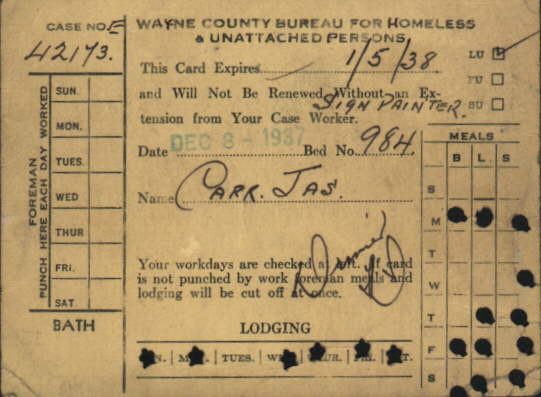 CASE NO.
42173.
WAYNE COUNTY BUREAU FOR HOMELESS
& UNATTACHED PERSONS
This Card Expires 1/5/38
LU
FU
SU
and Will Not Be Renewed Without an Ex-
SIGN PAINTER.
tension from Your Case Worker.
Date DEC 8 - 1937 Bed No. 984.
Name CARR. JAS.
Your workdays are checked at left. If card
is not punched by work foreman meals and
lodging will be cut off at once.
LODGING
TUES.
FOREMAN
PUNCH HERE EACH DAY WORKED
SUN.
MON.
TUES.
WED
THUR
FRI.
SAT
BATH
MEALS
B L S
S
M
T
W
T
F
S